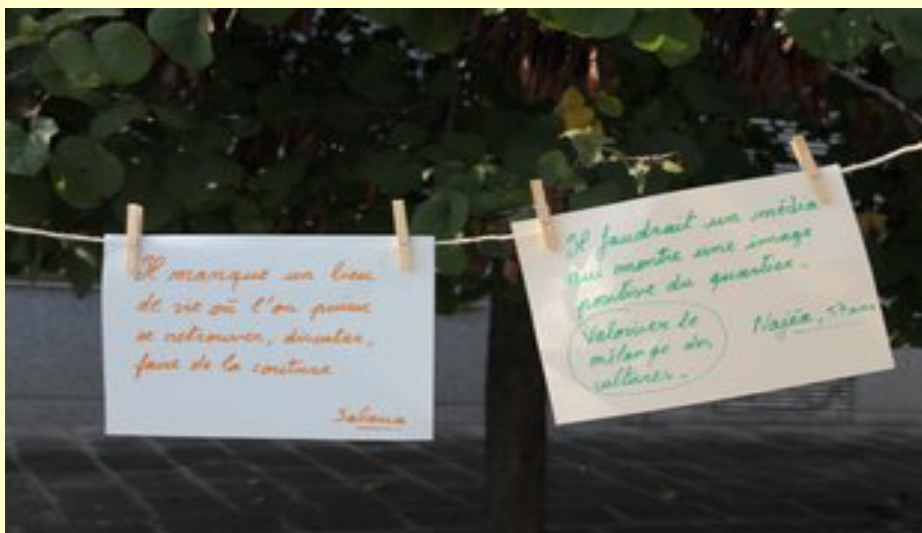 Il manque un lieu
de vie où l'on puisse
se retrouver, discuter,
faire de la couture
Il faudrait un média
qui montre une image
positive du quartier.
Valoriser le
mélange des
cultures.
Najéa, 57 ans